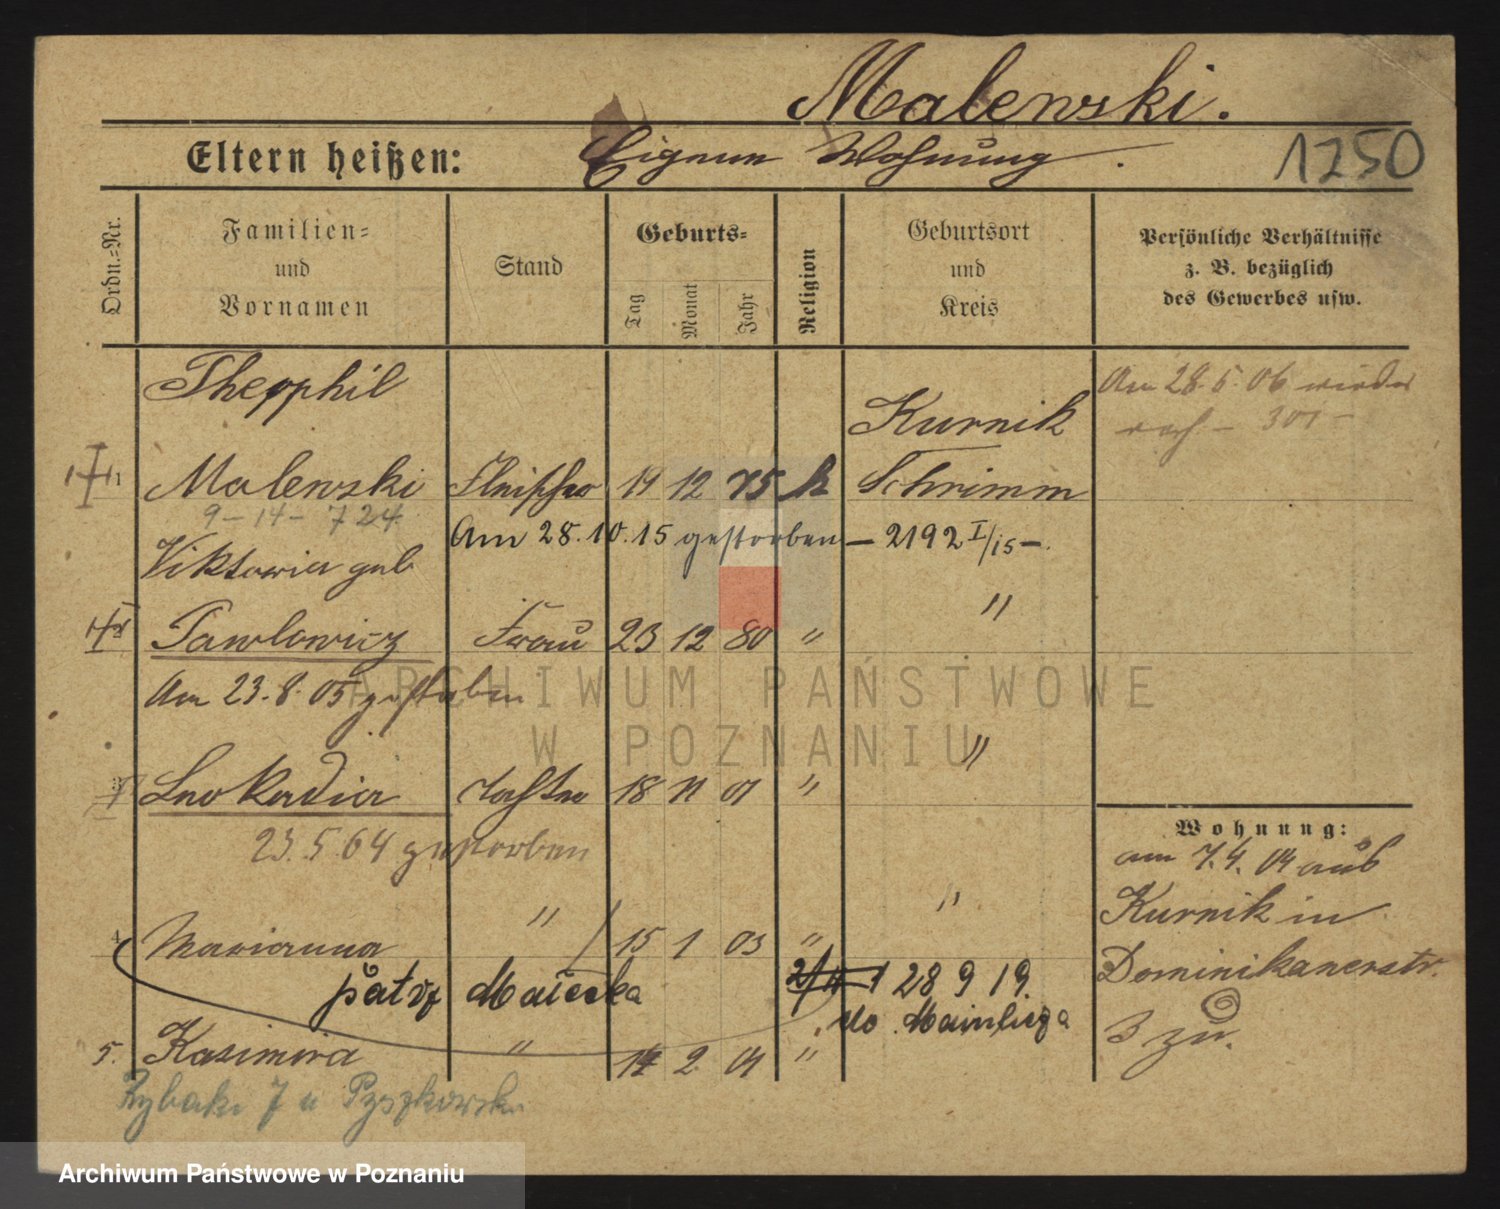 Malewski.
Eltern heißen: Eigene Wohnung. 1250
Ordn.-Nr.
Familien- und Vornamen
Stand
Geburts-
Tag Monat Jahr
Religion
Geburtsort und Kreis
Persönliche Verhältnisse z. B. bezüglich des Gewerbes usw.
Theophil
Am 28.5.06 wieder
Kurnik
nach - 301 -
1 Malewski Fleischer 19 12 75 k Schrimm
9 - 14 - 724
Am 28.10.15 gestorben - 2192 I/15 -.
Viktoria geb
"
Pawlowicz Frau 23 12 80 "
Am 23.8.05 gestorben
ARCHIWUM PAŃSTWOWE
W POZNANIU
"
Leokadia Tochter 18 11 01 "
Wohnung:
23.5.64 gestorben
am 7.4.04 aus
Kurnik in
" "
4 Marianna 15 1 03 "
Dominikanerstr.
patrz Maciejka 28 9 19.
3 zu.
5. Kasimira " 14 2 04 "
Rybaki 7 u Pyszkowsk
Archiwum Państwowe w Poznaniu